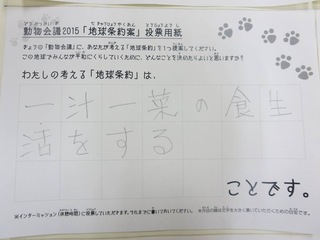 動物会議2015「地球条約案」投票用紙
きょうの「動物会議」に、あなたが考える「地球条約」を1つ提案してください。
この地球でみんなが平和にくらしていくために、どんなことを決めたらよいと思いますか?
わたしの考える「地球条約」は、
一汁一菜の食生
活をする
ことです。
※インターミッション(休憩時間)に投票していただきます。それまでに書いておいてください。